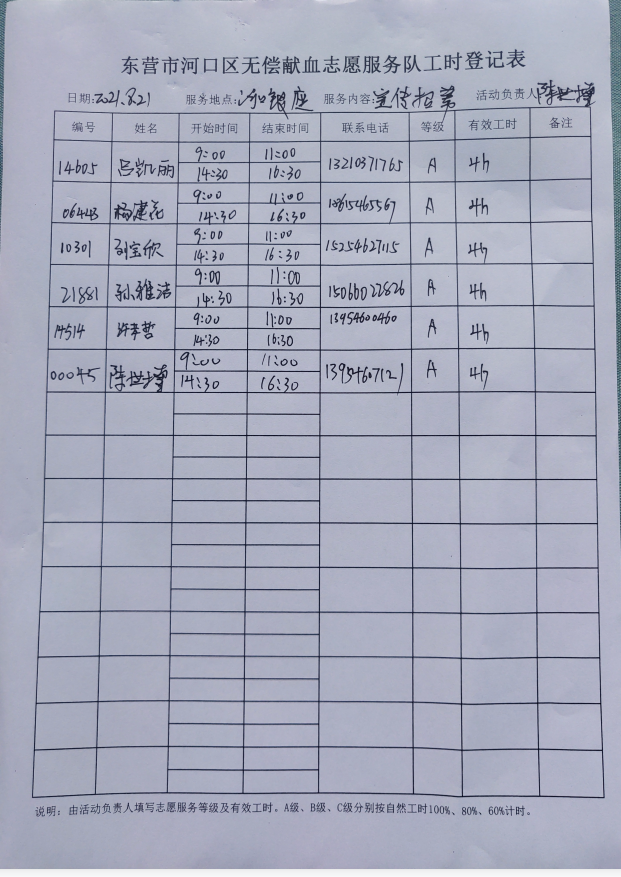 东营市河口区无偿献血志愿服务队工时登记表
日期:2021.8.21 服务地点: 服务内容:宣传招募 活动负责人
编号 姓名 开始时间 结束时间 联系电话 等级 有效工时 备注
14605 吕凯丽 9:00 11:00 13210371765 A 4h
14:30 16:30
06443 9:00 11:00 13615465567 A 4h
14:30 16:30
10301 刘宝欣 9:00 11:00 15254627115 A 4h
14:30 16:30
21881 孙雅洁 9:00 11:00 15066022826 A 4h
14:30 16:30
14514 许孝哲 9:00 11:00 13954600460 A 4h
14:30 16:30
00045 9:00 11:00 13954607121 A 4h
14:30 16:30
说明：由活动负责人填写志愿服务等级及有效工时。A级、B级、C级分别按自然工时100%、80%、60%计时。